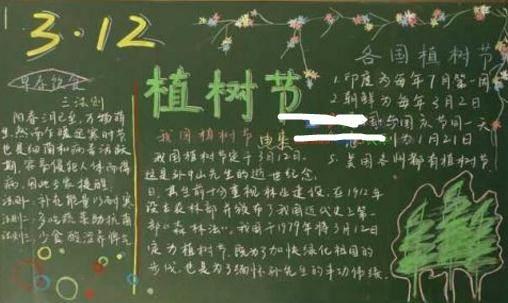 3·12
早春饮食
三法则
阳春三月已至,万物萌
生,然而乍暖还寒时节
也是细菌和病毒活跃
期,容易侵犯人体而得
病,因此专家提醒
法则一:补充能量以耐寒
法则二:多吃蔬菜助抗菌
法则三:少食酸滋养脾气
植树节
我国植树节 由来
我国植树节定于3月12日,
这是孙中山先生的逝世纪念
日,其生前十分重视林业建设,在1912年
设立农林部,并颁布了我国近代史上第一
部《森林法》。我国于1979年将3月12日
定为植树节,既为了加快绿化祖国的
步伐,也是为了缅怀孙先生的丰功伟绩。
各国植树节
1.印度为每年7月第一周
2.朝鲜为每年3月2日
都与国庆节同一天
为1月21日
5.美国各州都有植树节